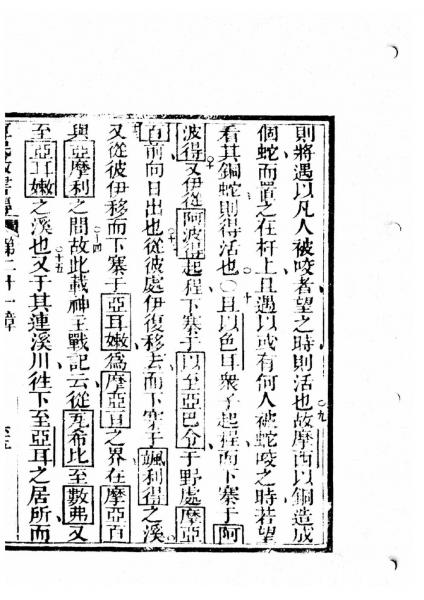 則將遇以凡人被咬者望之時則活也故摩西以銅造成
個蛇而置之在杆上且遇以或有何人被蛇咬之時若望
看其銅蛇則得活也〇且以色耳衆子起程而下寨于阿
波得又伊從阿波得起程下寨于以至亞巴于野處摩亞
百前向日出也從彼處伊復移去而下寨于颯利得之溪
又從彼伊移而下寨于亞耳嫩爲摩亞百之界在摩亞百
與亞摩利之間故此載神主戰記云從瓦希比至數弗又
至亞耳嫩之溪也又于其連溪川徃下至亞耳之居所而
第二十一章